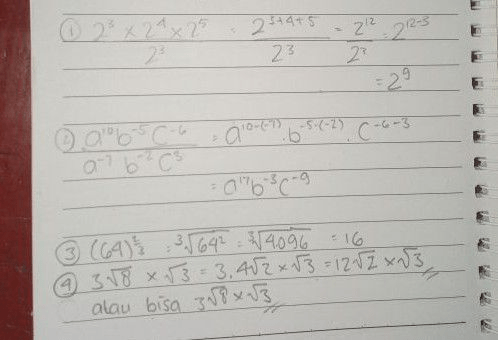 ① 2³ × 2⁴ × 2⁵ / 2³ = 2³⁺⁴⁺⁵ / 2³ = 2¹² / 2³ = 2¹²⁻³
= 2⁹
② a¹⁰b⁻⁵c⁻⁶ / a⁻⁷ b⁻² c³ = a¹⁰⁻⁽⁻⁷⁾ . b⁻⁵⁻⁽⁻²⁾ . c⁻⁶⁻³
= a¹⁷b⁻³c⁻⁹
③ (64)^⅔ = ³√64² = ³√4096 = 16
④ 3√8 × √3 = 3.4√2 × √3 = 12√2 × √3 //
atau bisa 3√8 × √3 //